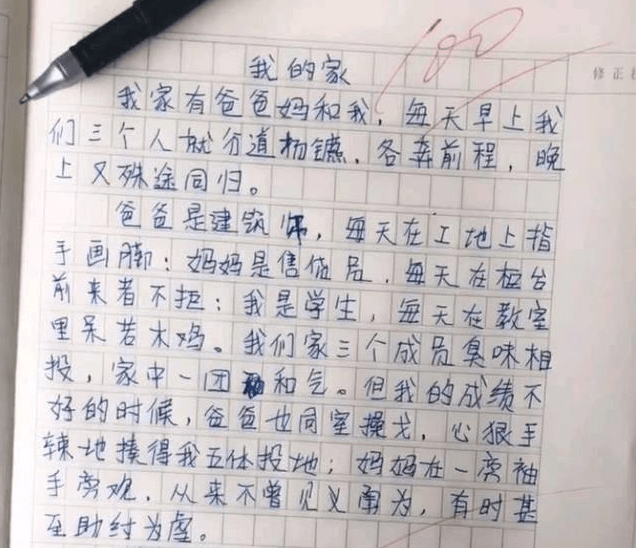 100
修正
我的家
我家有爸爸妈和我，每天早上我
们三个人就分道扬镳，各奔前程，晚
上又殊途同归。
爸爸是建筑师，每天在工地上指
手画脚；妈妈是售货员，每天在柜台
前来者不拒；我是学生，每天在教室
里呆若木鸡。我们家三个成员臭味相
投，家中一团和气。但我的成绩不
好的时候，爸爸也同室操戈，心狠手
辣地揍得我五体投地；妈妈在一旁袖
手旁观，从来不曾见义勇为，有时甚
至助纣为虐。